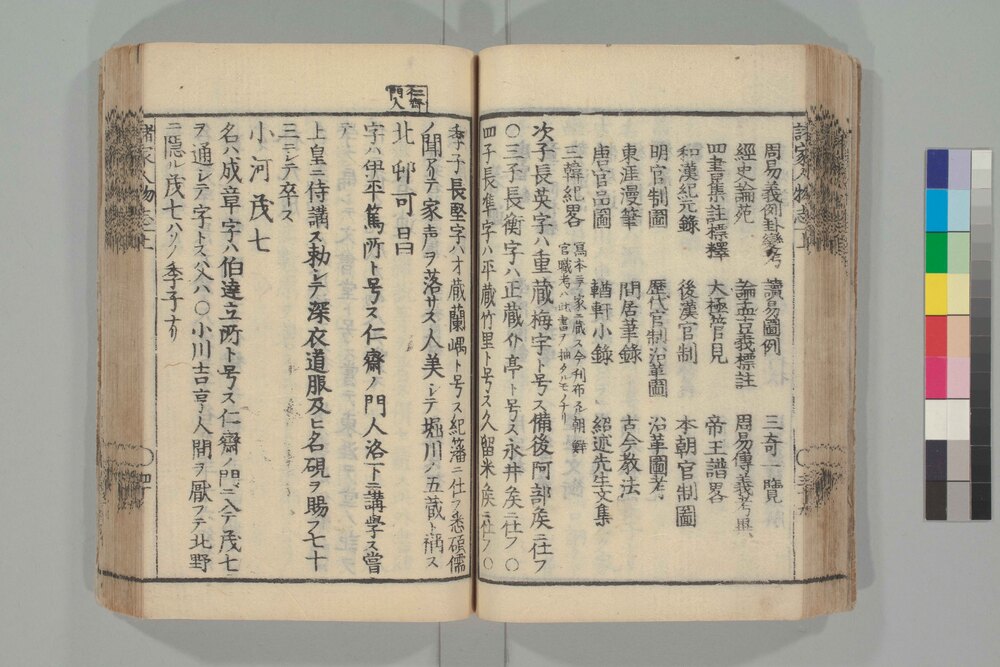 諸家人物志上
周易義例卦變考　讀易圖例　三奇一覽
經史論苑　論孟古義標註　周易傳義考異
四書集註標釋　大極管見　帝王譜畧
和漢紀元錄　後漢官制　本朝官制圖
明官制圖　歷代官制沿革圖　沿革圖考
東涯漫筆　間居筆錄　古今教法
唐官品圖　輶軒小錄　紹述先生文集
三韓紀畧
寫本ニテ家ニ藏ス今刊布スル朝鮮
官職考ハ此書ヲ抽タルモノナリ
次子長英字ハ重藏梅宇ト号ス備後阿部矦ニ仕フ
〇三子長衡字ハ正藏介亭ト号ス永井矦ニ仕フ〇
四子長準字ハ平藏竹里ト号ス久留米矦ニ仕フ〇
季子長堅字ハ才藏蘭嵎ト号ス紀藩ニ仕フ悉碩儒
ノ聞アリテ家声ヲ落サス人美シテ堀川ノ五藏ト稱ス
仁齋門人
北邨可昌
字ハ伊平篤所ト号ス仁齋ノ門人洛下ニ講學ス嘗テ
上皇ニ侍講ス勅シテ深衣道服及ヒ名硯ヲ賜フ七十
三ニシテ卒ス
小河茂七
名ハ成章字ハ伯達立所ト号ス仁齋ノ門ニ入テ茂七
ヲ通シテ字トス父ハ〇小川吉亨人間ヲ厭フテ北野
ニ隱ル茂七ハソノ季子ナリ
諸家人物志上
四十